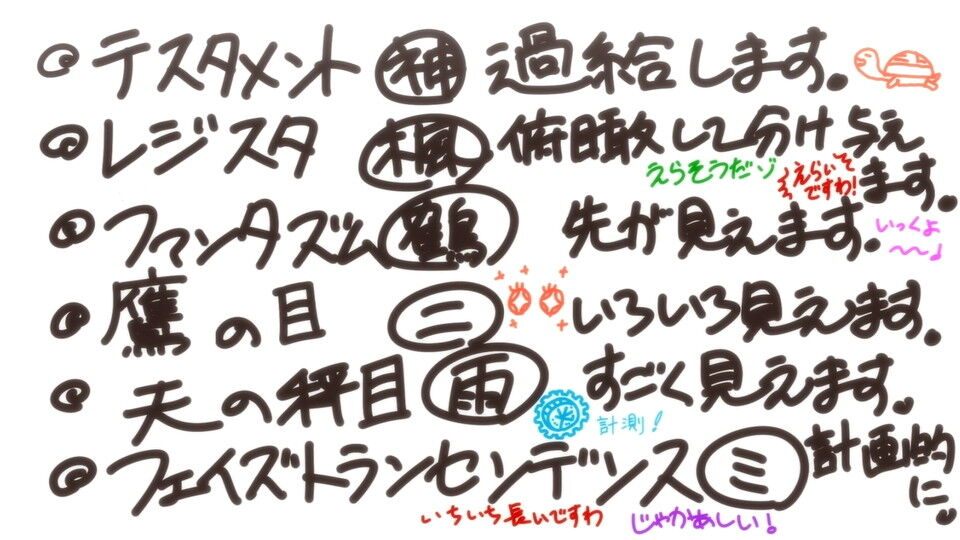 テスタメント 神 過給します。
レジスタ 楓 俯瞰して分け与え
ます。
えらそうだゾ
えらいそ
ですわ!
ファンタズム 鶴 先が見えます。
いっくよ
〜〜♩
鷹の目 二 いろいろ見えます。
天の秤目 雨 すごく見えます。
計測!
フェイズトランセンデンス ミ 計画的
に。
いちいち長いですわ
じゃかあしい!